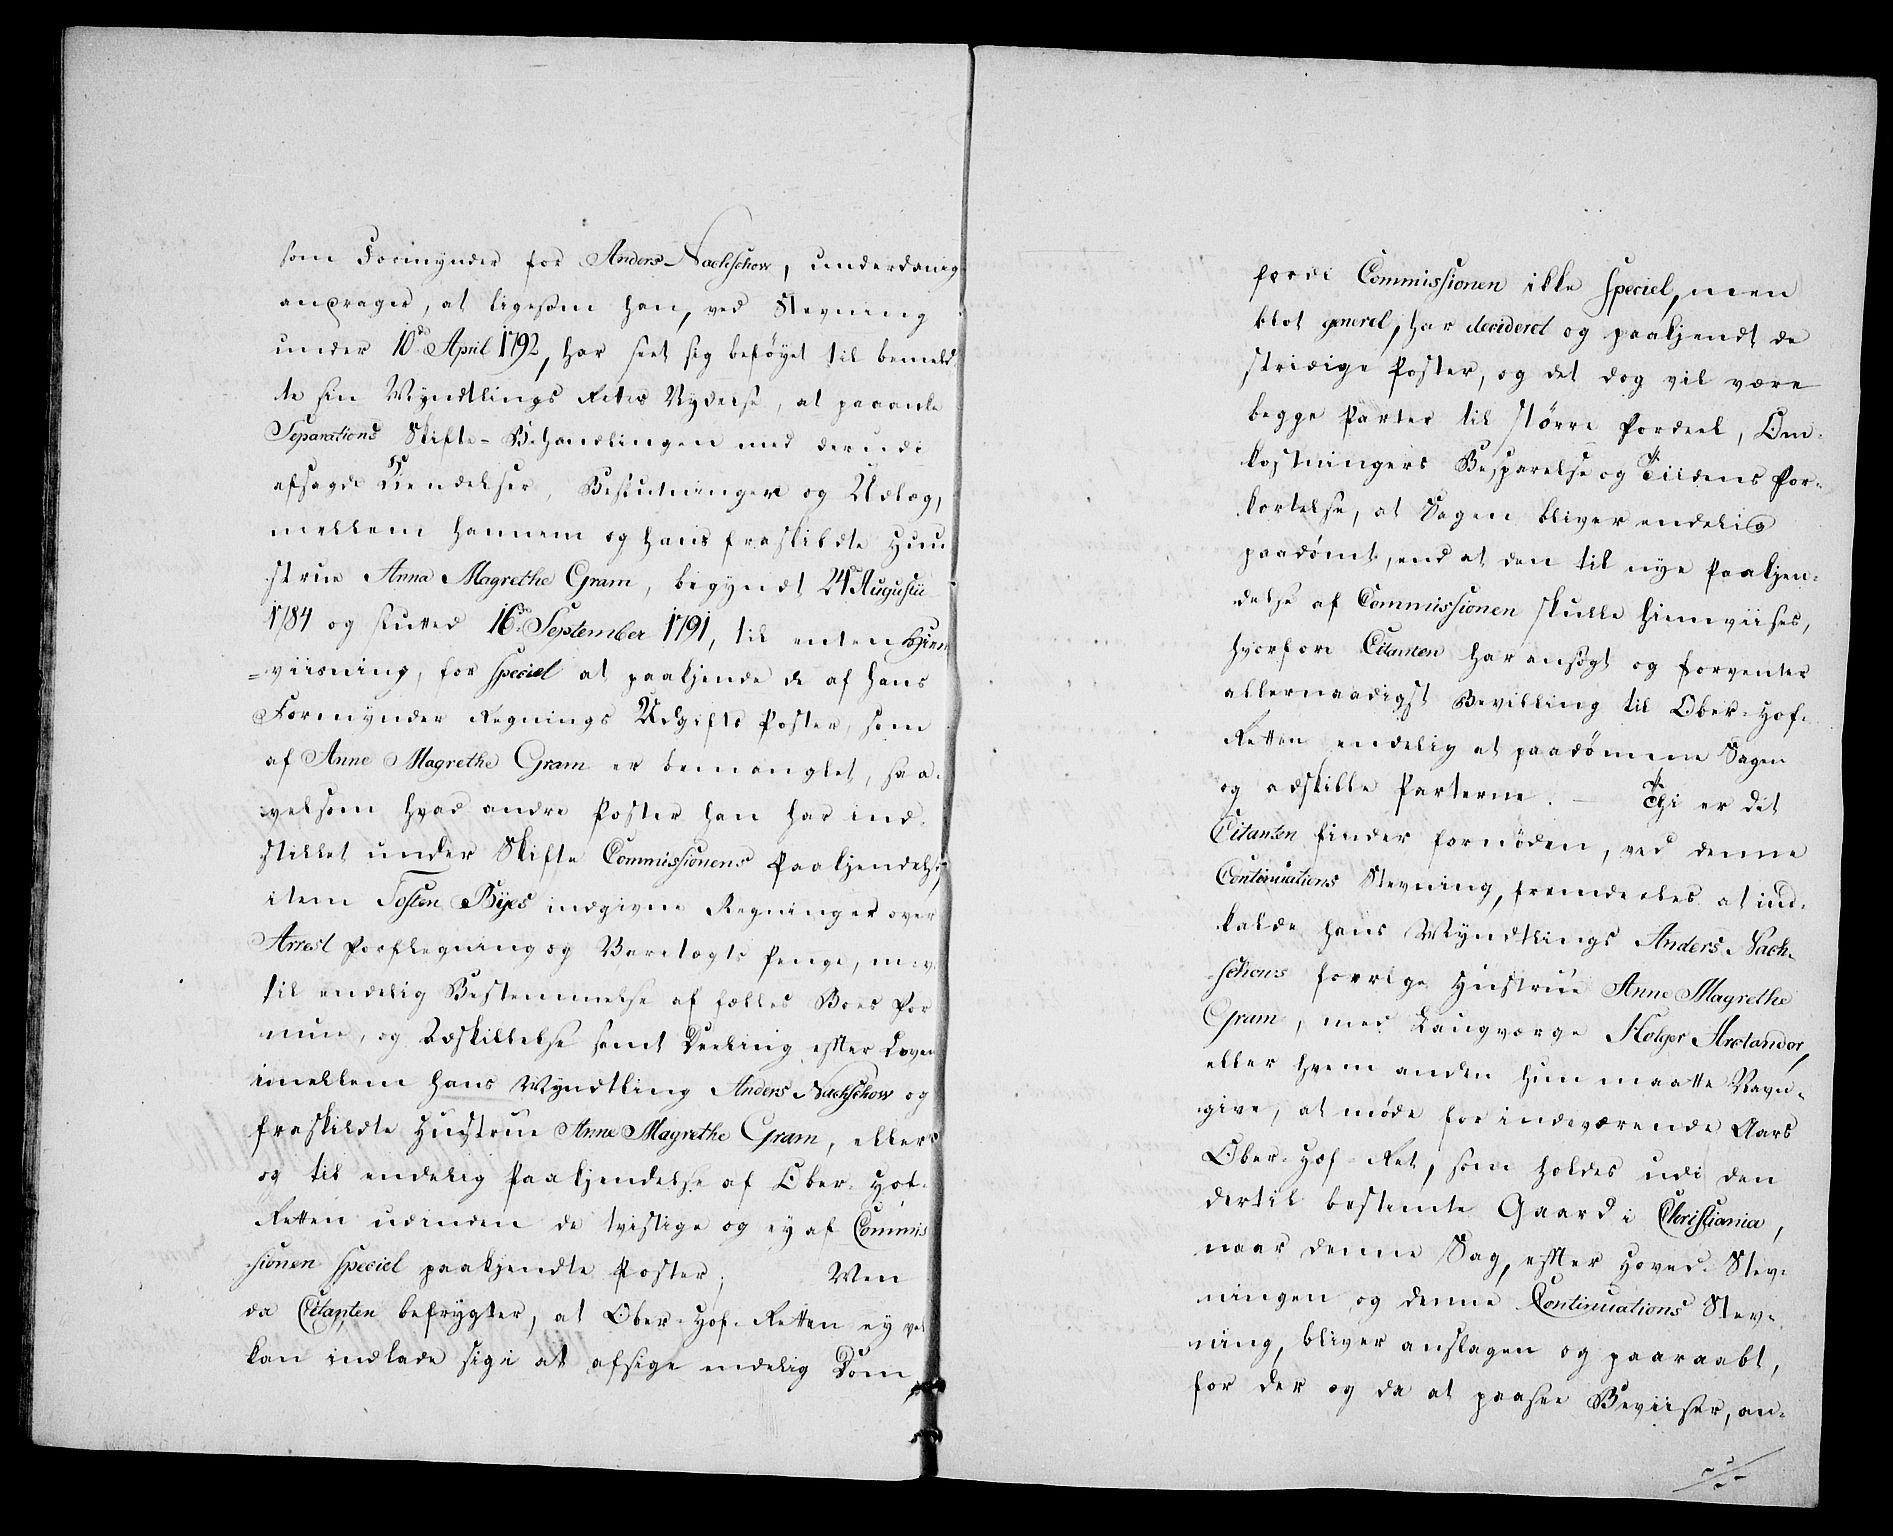 som Formynder for Anders Nachschow, underdanig
andrager, at ligesom han, ved Stevning
under 10de April 1792, har seet sig beføyet til bemeld
te sin Myndtlings Rettes Nydelse, at paaanke
Separations Skifte-Behandlingen med derudi
afsagde Kiendelser, Beslutninger og Udlæg,
mellem hannem og hans fraskildte Huu
strue Anna Magrethe Gram, begyndt 24 Augustii
1784 og slutted 16de September 1791, til enten Hjem
=viisning, for speciel at paakjende de af hans
Formynder Regnings Udgifts Poster, som
af Anne Magrethe Gram er bemanglet, saa-
velsom hvad andre Poster han har ind-
stillet under Skifte Commissionens Paakjendelse,
item Tosten Byes indgivne Regninger over
Arrest Forflegning og Varetægts Penge, m: v:
til endelig Bestemmelse af fælles Boes For
mue, og Adskillelse samt Deeling efter Loven
imellem hans Myndtling Anders Nachschow og
fraskildte Hustrue Anne Magrethe Gram, eller
og til endelig Paakjendelse af Ober-Hof-
Retten udinden de tvistige og ey af Commis
sionen speciel paakjendte Poster; Men
da Citanten befrygter, at Ober-Hof-Retten ey vel
kan indlade sig i at afsige endelig Dom
fordi Commissionen ikke speciel, men
blot generel, har decideret og paakjendt de
stridige Poster, og det dog vil være
begge Parter til større Fordeel, Om-
kostningers Besparelse og Tiidens For-
kortelse, at Sagen bliver endelig
paadømt, end at den til nye Paakjen-
delse af Commissionen skulle hiemviises,
hvorfore Citanten har ansøgt og forventer
allernaadigst Bevilling til Ober-Hof-
Retten endelig at paadømme Sagen
og adskille Parterne. — Thi er det
Citanten finder fornøden, ved denne
Continuations Stevning, fremdeeles at ind-
kalde hans Myndtlings Anders Nach-
schows forrige Hustrue Anne Magrethe
Gram, med Laugværge Holger Arctander,
eller hvem anden hun maatte Navn-
give, at møde for indeværende Aars
Ober-Hof-Ret, som holdes udi den
dertil bestemte Gaard i Christiania,
naar denne Sag, efter Hoved-Stev-
ningen og denne Continuations Stev-
ning, bliver anslagen og paaraabt,
for der og da at paasee Beviiser, an-